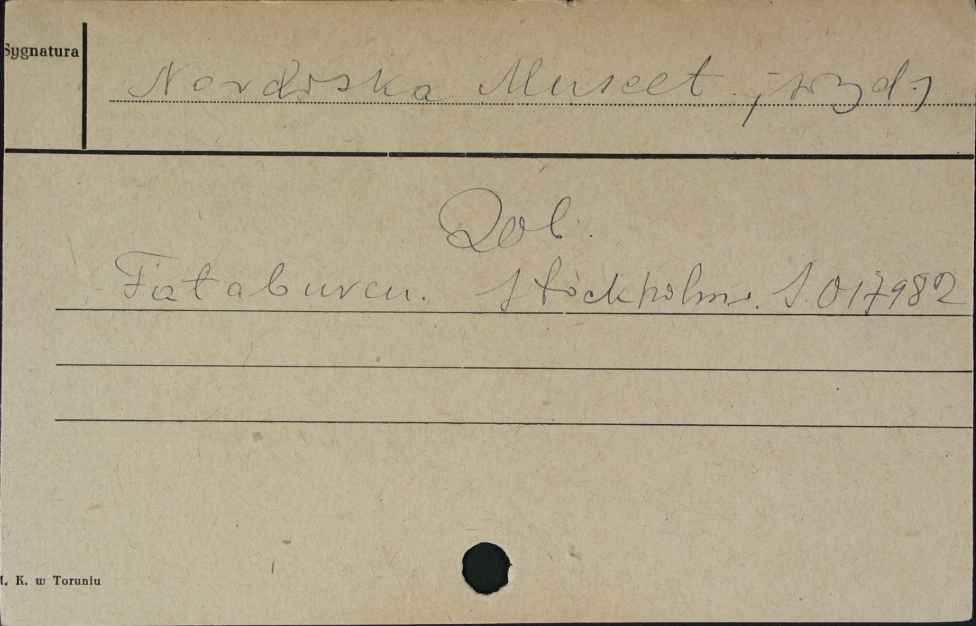 Sygnatura
Nordiska Museet /wyd./
Zob.
Fataburen. Stockholm. S.017982
K. w Toruniu